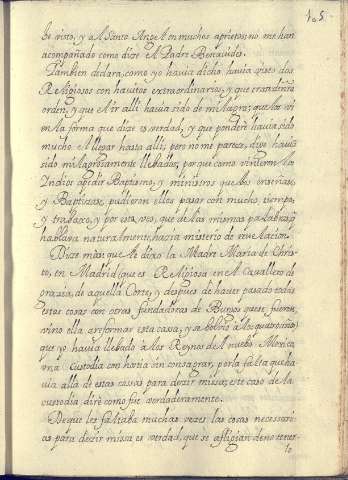 105
he visto, y a el Santo Angel en muchos aprietos no me han
acompañado como dize el Padre Benavides.
Tambien declara, como yo havia dicho, havia visto dos
Religiosos con havitos extraordinarios, y que eran de mi
orden, y que el ir alli havia sido de milagro; que los vi
en la forma que dize es verdad, y que ponderè havia sido
mucho el llegar hasta alli, pero no me parece, dixe havia
sido milagrosamente llebados, porque como vinieron los
Indios a pedir Baptismo, y ministros que los enseñasen,
y Baptizasen, pudieron ellos pasar con mucho tiempo,
y trabaxo, y por esta voz, que de las mismas palabras, que
hablava naturalmente, hacia misterio de revelacion.
Dize mas que le dixo la Madre Maria de Chris-
to, en Madrid (que es Religiosa en el Cavallero de
gracia, de aquella Corte, y despues de haver pasado todas
estas cosas con otras fundadoras de Burgos que se fueron,
vino ella a reformar esta casa, y se bolviò a los quatro años)
que yo havia llebado a los Reynos de el Nuebo Mexico
una Custodia con hostia sin consagrar, por la falta que ha-
via allà de estas cosas para dezir missa; este caso de la
custodia dirè como fue verdaderamente.
De que les faltaba muchas vezes las cosas necessari-
as para dezir missa es verdad, que se afligian de no tener-
lo